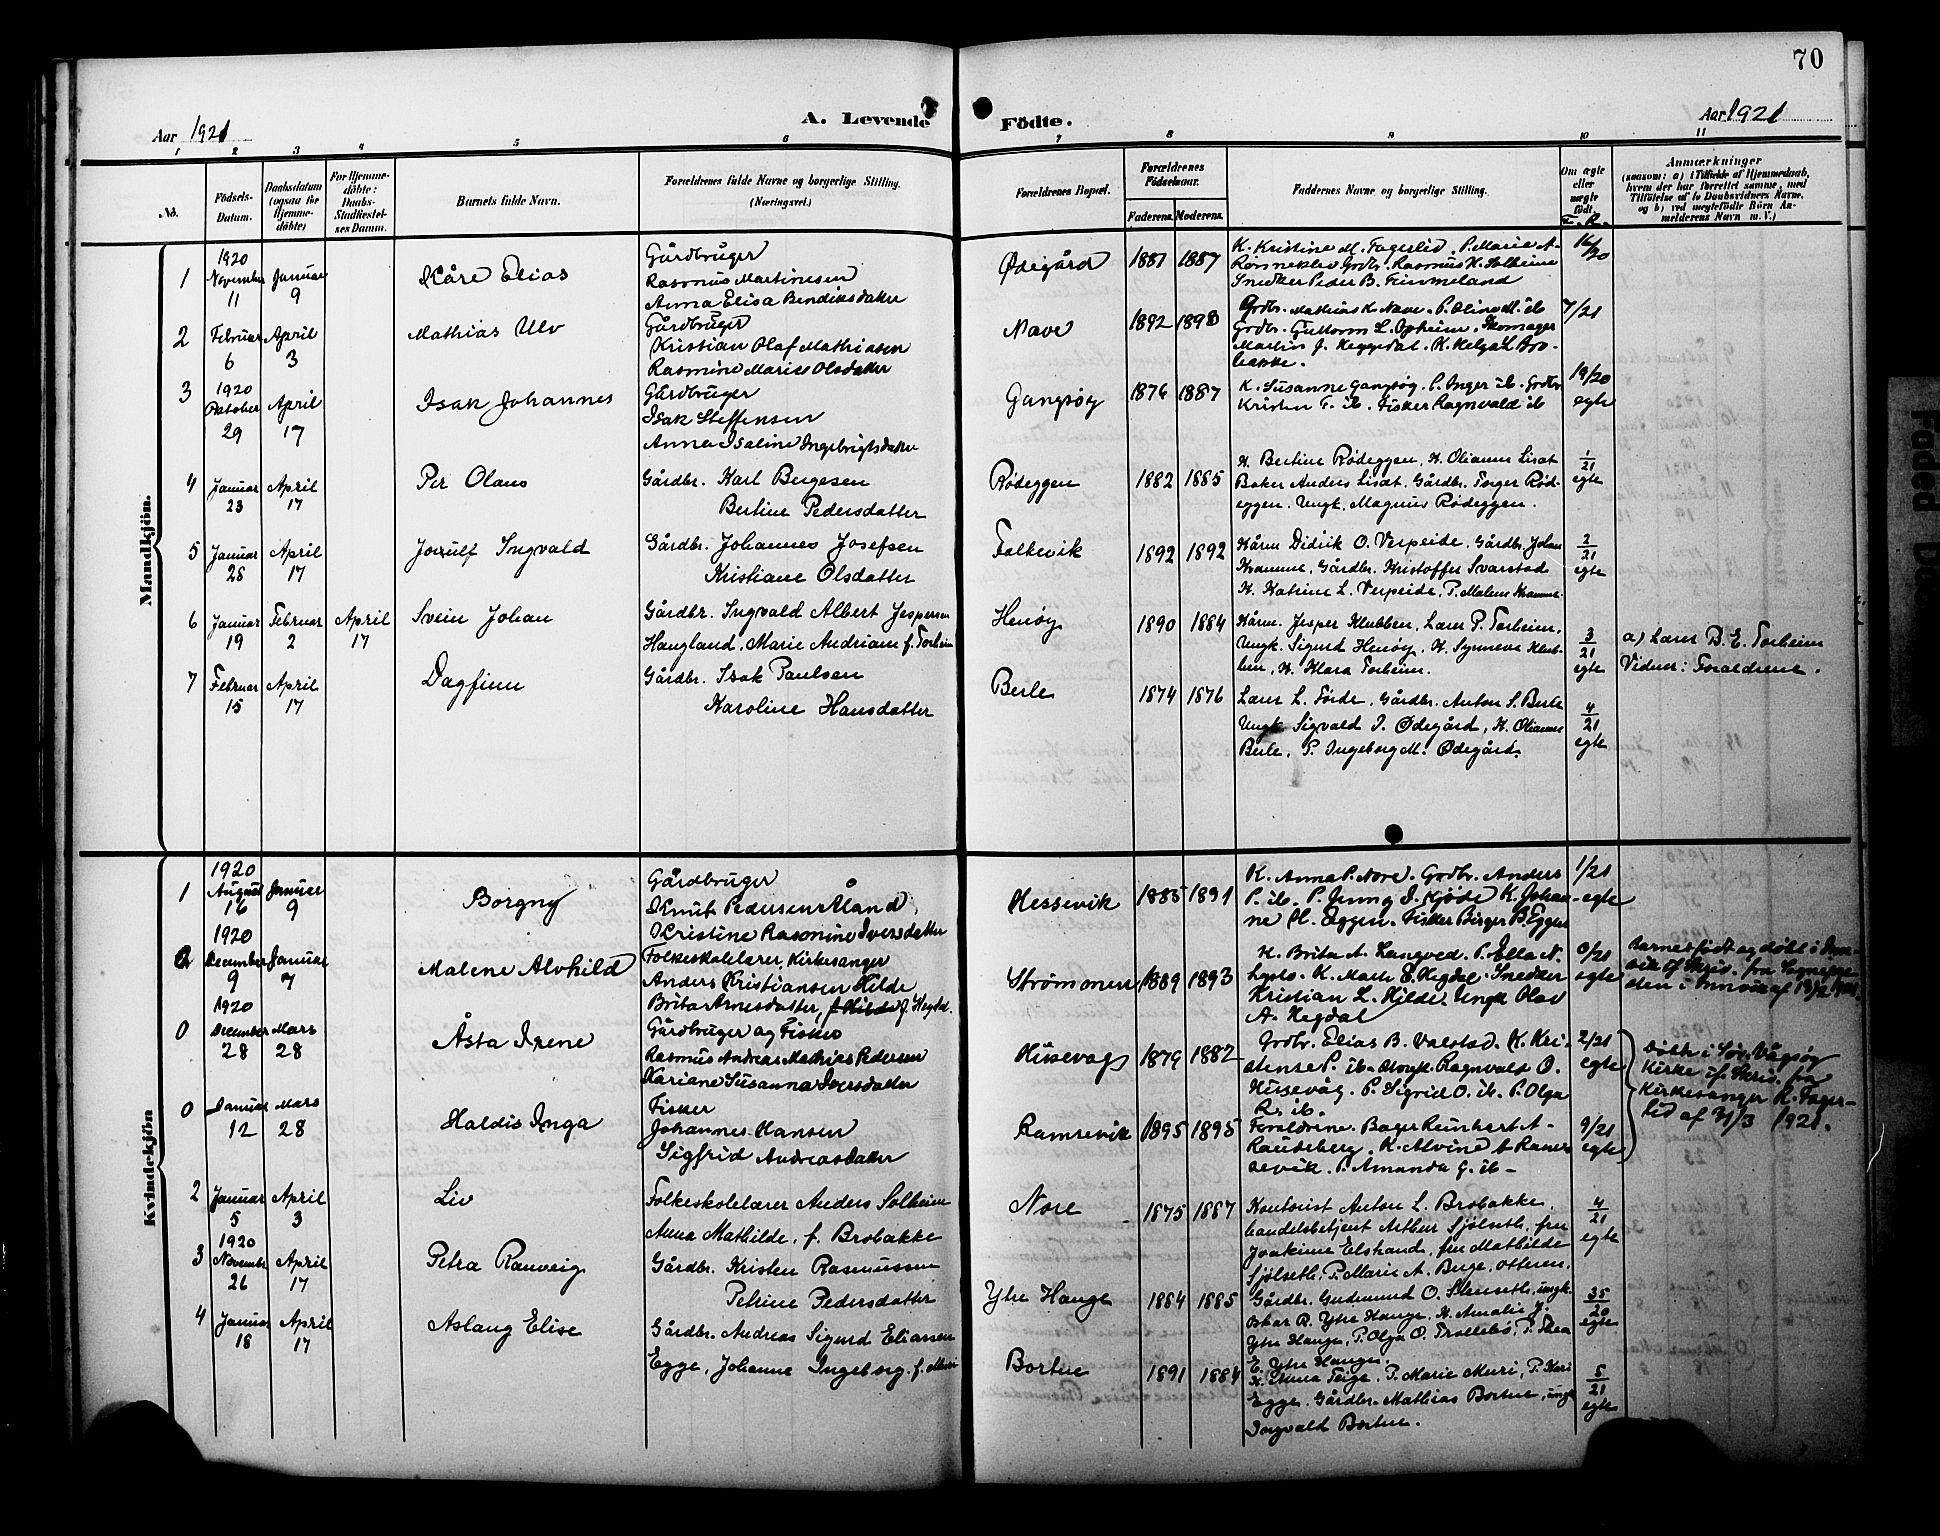 70
Aar 1921
A. Levende Födte.
Aar 1921
1 2 3 4 5 6 7 8 9 10 11
No.
Födsels-Datum.
Daabsdatum (ogsaa for Hjemme-döbte)
For Hjemme-döbte: Daabs-Stadfæstel-ses Datum.
Barnets fulde Navn.
Forældrenes fulde Navne og borgerlige Stilling.
(Næringsvei.)
Forældrenes Bopæl.
Forældrenes Födselsaar.
Faderens. Moderens.
Faddernes Navne og borgerlige Stilling.
Om ægte eller uægte født.
Anmærkninger
(saasom: a) i Tilfælde af Hjemmedaab,
hvem der har forrettet samme, med
Tilföielse af to Daabsvidners Navne,
og b) ved uægtefödte Börn An-
melderens Navn m. V.)
Mandkjön.
1 1920 November 11 Januar 9 Kåre Elias
Gårdbruger
Rasmus Martinesen
Anna Elisa Bendiksdatter
Ødegård 1881 1887
K. Kristine M. Fagerlid, P. Marie A-
Rønneklev Grdbr. Rasmus K. Solheim
Snedker Peder B. Timmeland
16/20
2 Februar 6 April 3 Mathias Ulv
Gårdbruger
Kristian Olaf Mathiasen
Rasmine Marie Olsdatter
Nave 1892 1898
Grdbr. Mathias K. Nave. P. Oline M. ib
Grdbr. Guttorm L. Opheim. Skomager
Martin J. Heggedal. K. Helga L Bro-
bakke.
7/21
3 1920 Oktober 29 April 17 Isak Johannes
Gårdbruger
Isak Steffensen
Anna Isaline Ingebrigtsdatter
Gangsøy 1876 1887
K. Susanne Gangsøy. P. Inger ib. Grdbr
Kristen T. ib. Fisker Ragnvald ib
19/20 egte
4 Januar 23 April 17 Per Olaus
Gårdbr. Karl Bergesen
Bertine Pedersdatter
Rødeggen 1882 1885
K. Bertine Rødeggen, K. Olianna Lisæt
Baker Anders Lisæt. Gårdbr. Torger Rød-
eggen. Ungk. Magnus Rødeggen.
1/21 egte
5 Januar 28 April 17 Jorulf Ingvald
Gårdbr. Johannes Josefsen
Kristiane Olsdatter
Falkevik 1892 1892
Kårm. Didrik O. Verpeide. Gårdbr. Johan
Kvamme, Gårdbr. Kristoffer Svarstad
K. Katrine L. Verpeide, P. Malene Kvamme.
2/21 egte
6 Januar 19 Februar 2 April 17 Svein Johan
Gårdbr. Ingvald Albert Jespersen
Haugland, Marie Andriane f. Torheim
Henøy 1890 1884
Kårm. Jesper Klubben, Lærer P. Torheim,
Ungk. Sigurd Henøy, K. Synneve Klub-
ben, K. Klara Torheim.
3/21 egte
a) Lærer B. E. Torheim
Vidner: Foraldrene.
7 Februar 15 April 17 Dagfinn
Gårdbr. Isak Paulsen
Karoline Hansdatter
Berle 1874 1876
Lærer L. Förde, Gårdbr. Anton S. Berle
Ungk. Sigvald I. Ødegård, K. Olianna
Berle, P. Ingeborg M. Ødegård.
4/21 egte
Kvindekjön
1 1920 August 16 Januar 9 Borgny
Gårdbruger
Knut Pedersen Åland,
Kristine Rasmine Iversdatter
Hessevik 1885 1891
K. Anna P. Nore. Grdbr. Anders
P. ib. P. Jenny I. Kjøde K. Johan-
ne H. Eggen. Fisker Birger B. Eggen
1/21 egte
0 1920 December 9 Januar 7 Malene Alvhild
Folkeskolelærer, Kirkesanger
Anders Kristiansen Hilde
Brita Arnesdatter, f. Hegdal.
Strømmen 1889 1893
K. Brita A. Langved. P. Ella N.
K. Marte E. Hegdal. Snedker
Kristian L. Hilde. Ungk Olav
A. Hegdal
0/21 egte
Barnet født og døbt i Inn-
vik if. Skriv. fra Sognepre-
sten i Innvik af
0 1920 December 28 Mars 28 Åsta Irene
Gårdbruger og Fisker
Rasmus Andreas Mathias Pedersen
Kariane Susanna Iversdatter
Husevåg 1879 1882
Grdbr. Elias B. Valstad. K. Kri-
stense P. ib. Ungk. Ragnvald O.
Husevåg. P. Sigrid O. ib. P. Olga
R. ib.
2/21 egte
Døbt i Sør-Vågsøy
Kirke if. Skriv. fra
Kirkesanger K. Fager-
lid af 31/3 1921.
0 Januar 12 Mars 28 Haldis Inga
Fisker
Johannes Hansen
Sigfrid Andreasdatter
Ramsevik 1895 1895
Foraldrene. Bager Reinhart A-
Raudeberg. K. Alvine A Ram-
sevik. P. Amanda G. ib-
9/21 egte
2 Januar 5 April 3 Liv
Folkeskolelærer Anders Solheim
Anna Mathilde, f. Brobakke
Nore 1875 1887
Kontorist Anton L. Brobakke,
handelsbetjent Arthur Sjölseth, fru
Joakime Elshaud, fru Mathilde
Sjölseth, P. Marie A. Berge, Otteren.
4/21 egte
3 1920 November 26 April 17 Petra Ranveig
Gårdbr. Kristen Rasmussen
Petrine Pedersdatter
Ytre Hauge 1884 1885
Gårdbr. Gudmund O. Stenseth, ungk.
Oskar R. Ytre Hauge, K. Amalie J.
Ytre Hauge, P. Olga O. Trollebö, P. Thea
E. Ytre Hauge.
35/20 egte
4 Januar 18 April 17 Aslaug Elise
Gårdbr. Andreas Sigurd Eliassen
Egge, Johanne Ingeborg f. Muri
Bortne 1891 1884
K. Anna Teige, P. Marie Muri, P. Kari
Egge, Gårdbr. Mathias Bortne, ungk
Ingvald Bortne.
5/21 egte